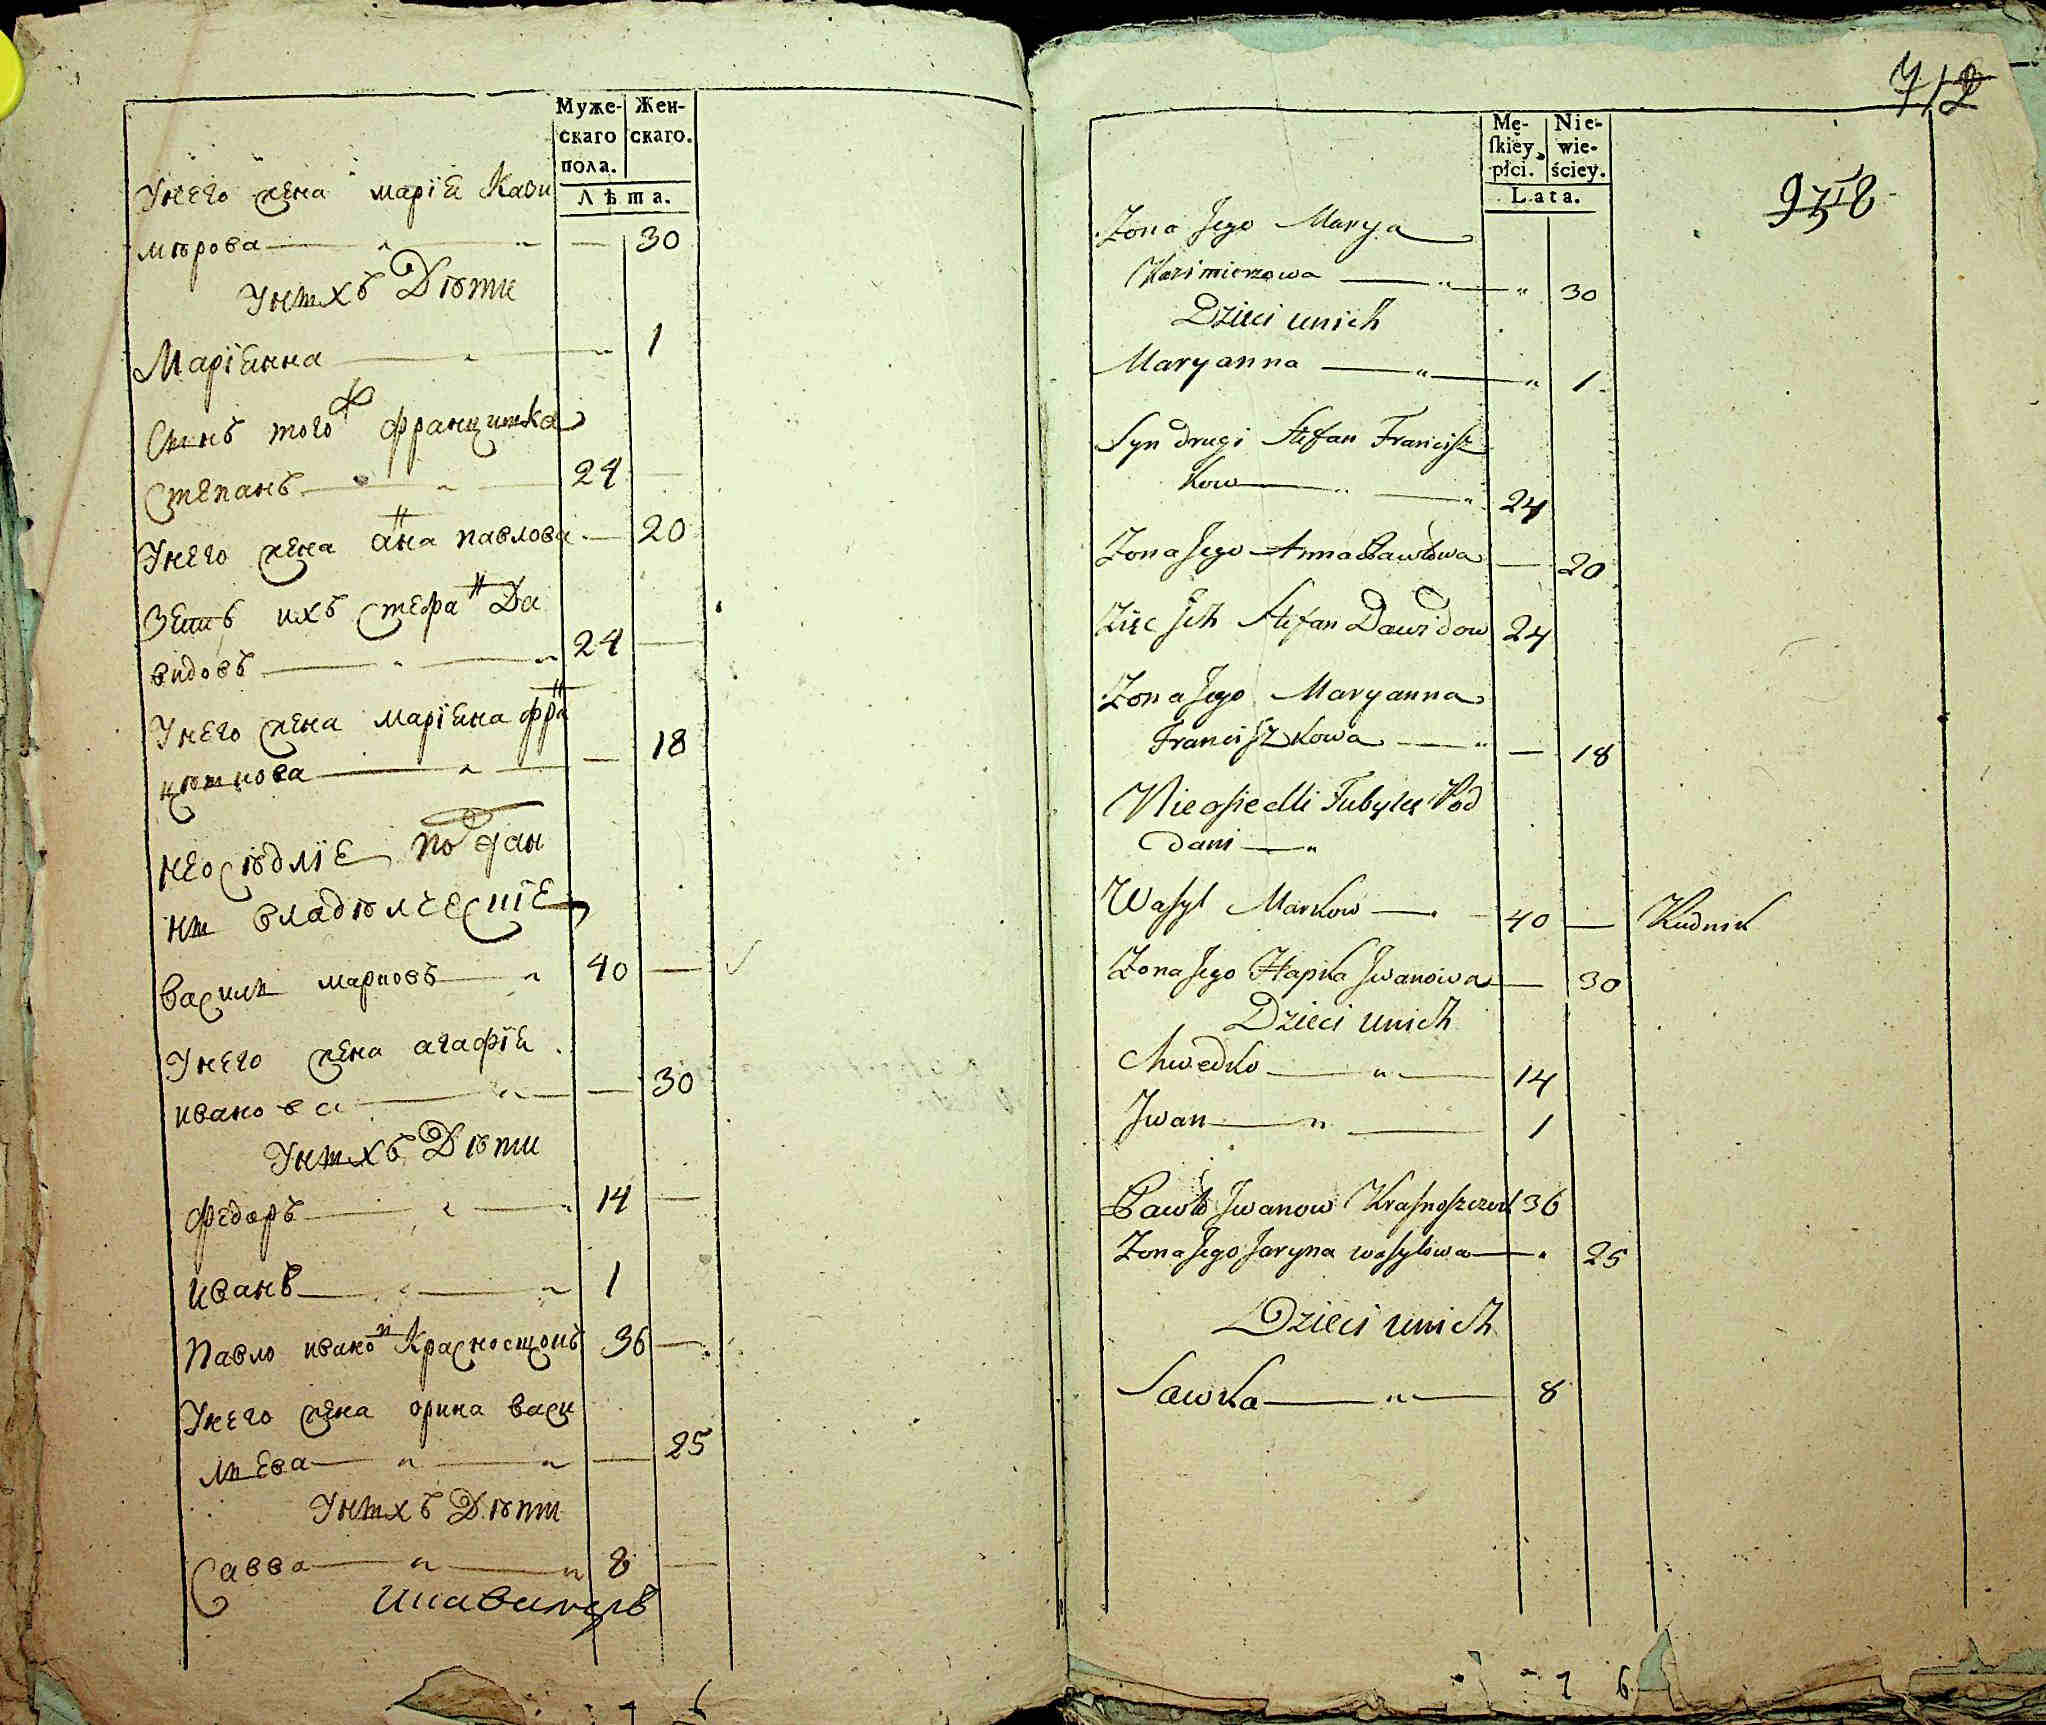 Муже-
скаго
пола.
Жен-
скаго.
Лѣта.
У него жена марїя Кази
мѣрова — — — 30
У нихъ Дѣти
Марїянна — — 1
Сынъ того ж францишка
Степанъ — — 24 —
У него жена анна павлова — 20
Зять ихъ стефан Да
видовъ — — 24 —
У него жена марїяна фран
цѣшкова — — — 18
неосѣдлїе поддан
ны владѣлческїе
василь марковъ — 40 —
У него жена агафїя
иванова — — 30
У нихъ Дѣти
федоръ — — 14 —
иванъ — — 1
Павло иванов Краснощокъ 36 —
У него жена орина васи
льева — — — 25
У нихъ Дѣти
Савва — — 8 —
712
Mę-
ſkiey
płci.
Nie-
wie-
ściey.
Lata.
9518
Zona Jego Marya
Kazimierzowa — — 30
Dzieci unich
Maryanna — — 1
Syn drugi Stefan Francisz
kow — — 24
Zona Jego Anna Pawłowa — 20
Zięc Jch Stefan Dawidow 24
Zona Jego Maryanna
Franciszkowa — — 18
Nieosiedli Tubylcy Pod
dani —
Wasyl Markow — 40 — Rudnik
Zona Jego Hapka Jwanowa — 30
Dzieci unich
Chwedko — — 14
Jwan — — 1
Pawło Jwanow Krasnoszczok 36
Zona Jego Jaryna wasylowa — 25
Dzieci unich
Sawka — — 8